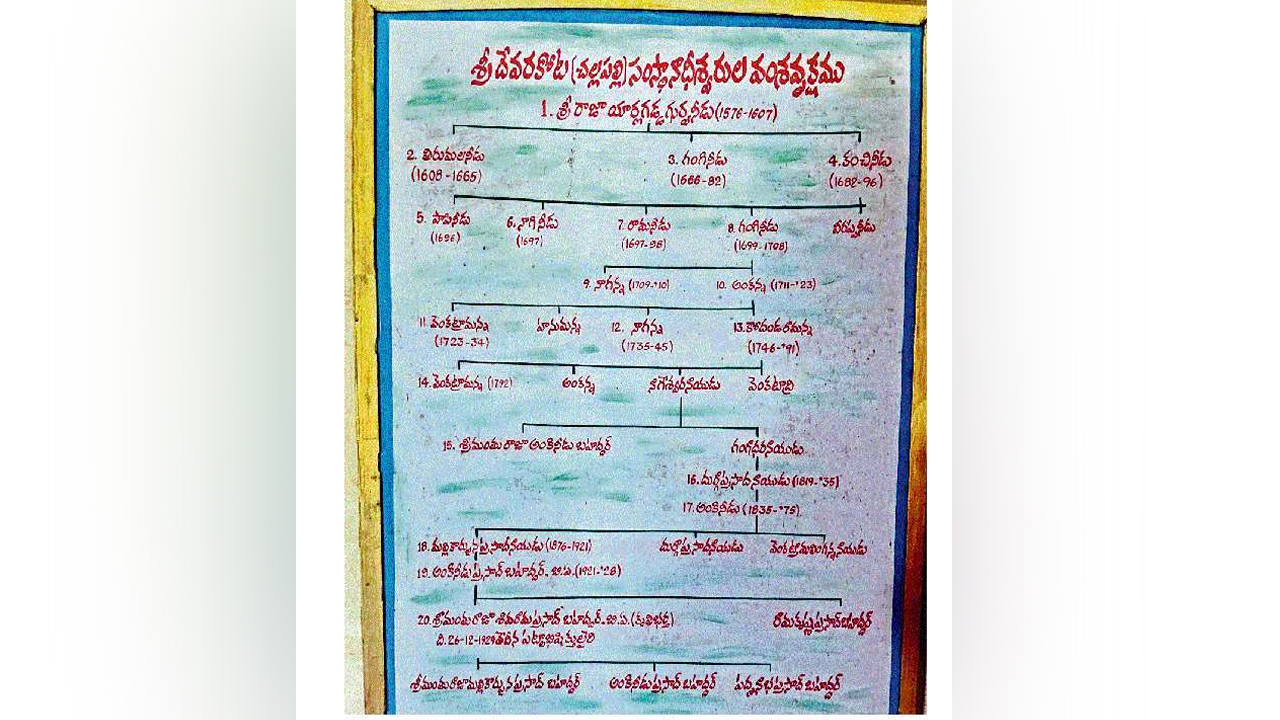 శ్రీ దేవరకోట (చల్లపల్లి) సంస్థానాధీశ్వరుల వంశవృక్షము
1. శ్రీ రాజా యార్లగడ్డ గుర్వినీడు (1576-1607)
2. తిరుమలనీడు 3. గంగినీడు 4. కంచినీడు
(1608-1665) (1666-82) (1682-96)
5. పాపినీడు 6. నాగినీడు 7. రామినీడు 8. గంగినీడు వీరప్పనీడు
(1696) (1697) (1697-98) (1699-1708)
9. నాగన్న (1709-'10) 10. అంకన్న (1711-'23)
11. వెంకట్రామన్న హనుమన్న 12. నాగన్న 13. కోదండరామన్న
(1723-34) (1735-45) (1746-'91)
14. వెంకట్రామన్న (1792) అంకన్న నాగేశ్వరనాయుడు వెంకటాద్రి
15. శ్రీమంతురాజా అంకినీడు బహద్దర్ గంగాధరనాయుడు
16. దుర్గాప్రసాదనాయుడు (1819-'35)
17. అంకినీడు (1835-'75)
18. మల్లికార్జునప్రసాదనాయుడు (1876-1921) దుర్గాప్రసాదనాయుడు
19. అంకినీడుప్రసాద్ బహద్దర్. బి.ఏ. (1921-'28)
20. శ్రీమంతురాజా శివరామప్రసాద్ బహద్దర్. బి.ఏ. రామకృష్ణప్రసాద్ బహద్దర్
ది. 26-12-1929 తేదిన
శ్రీమంతురాజా మల్లికార్జునప్రసాద్ బహద్దర్ అంకినీడుప్రసాద్ బహద్దర్ పద్మనాభప్రసాద్ బహద్దర్